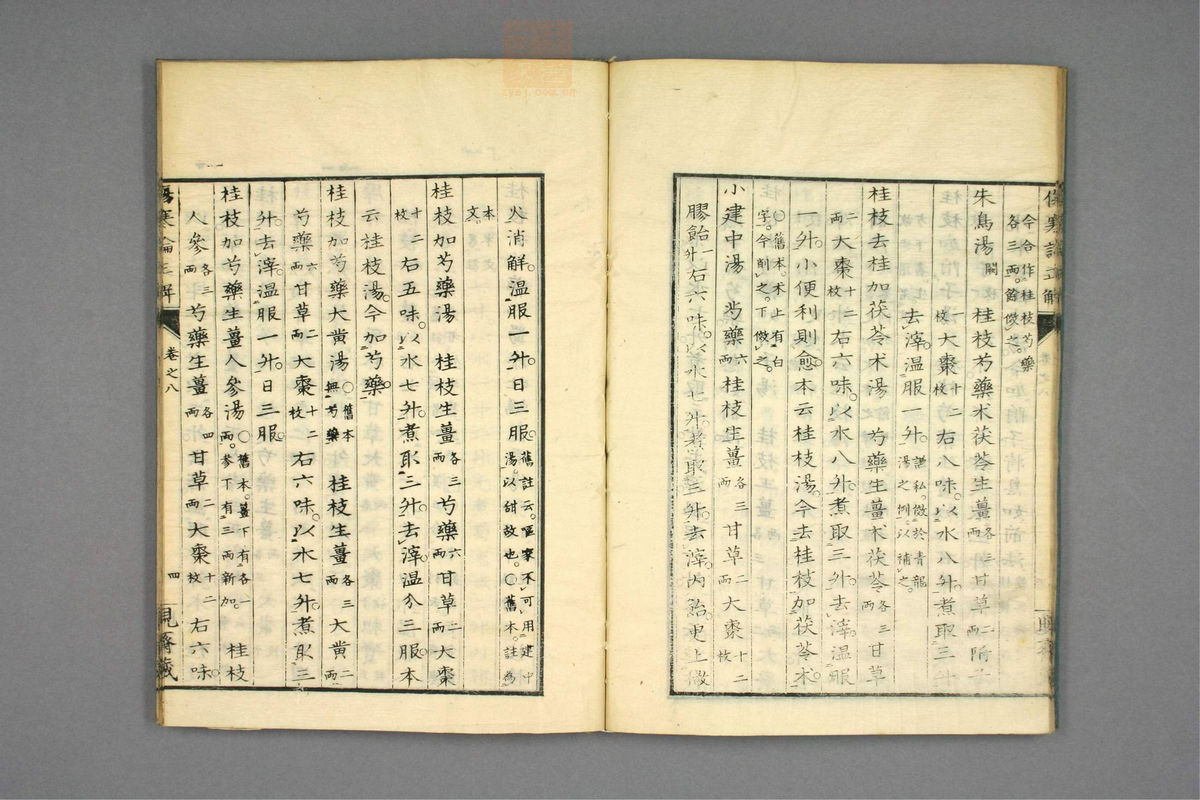 今合作桂枝芍藥
各三兩。餘倣之。
朱鳥湯 闕 桂枝芍藥朮茯苓生薑各三兩甘草二兩附子
一枚大棗十二枚右八味。以水八升。煮取三升
去滓。溫服一升。謙私。倣於青龍湯之例。以補之。
桂枝去桂加茯苓朮湯 芍藥生薑朮茯苓各三兩甘草
二兩大棗十二枚右六味。以水八升。煮取三升。去滓。溫服
一升。小便利則愈。本云桂枝湯。今去桂枝加茯苓朮。
○舊本。朮上有白字。今削之。下倣之。
小建中湯 芍藥六兩桂枝生薑各三兩甘草二兩大棗十二枚
膠飴一升右六味。以水七升。煮取三升。去滓。內飴。更上微
火消解。溫服一升。日三服。舊註云。嘔家不可用建中湯。以甜故也。○舊本。註為
本文。
桂枝加芍藥湯 桂枝生薑各三兩芍藥六兩甘草二兩大棗
十二枚右五味。以水七升。煮取三升。去滓。溫分三服。本
云桂枝湯。今加芍藥。
桂枝加芍藥大黃湯○舊本無芍藥 桂枝生薑各三兩大黃二兩
芍藥六兩甘草二兩大棗十二枚右六味。以水七升。煮取三
升。去滓。溫服一升。日三服。
桂枝加芍藥生薑人參湯○舊本。薑下有各一兩。參下有三兩新加。 桂枝
人參各三兩芍藥生薑各四兩甘草二兩大棗十二枚右六味。
傷寒論正解
卷之八
四